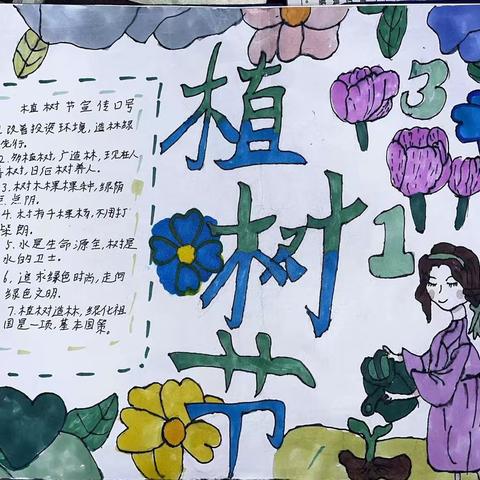 植树节宣传口号
1.改善投资环境,造林绿
先行.
2.多植树,广造林,现在人
养树,日后树养人.
3.树木木棵棵种,绿荫
点点阴.
4.村有千棵杨,不用打
柴郎.
5.水是生命源至,树是
水的卫士.
6.追求绿色时尚,走向
绿色文明.
7.植树造林,绿化祖
国是一项基本国策.
植
树
节
3
1